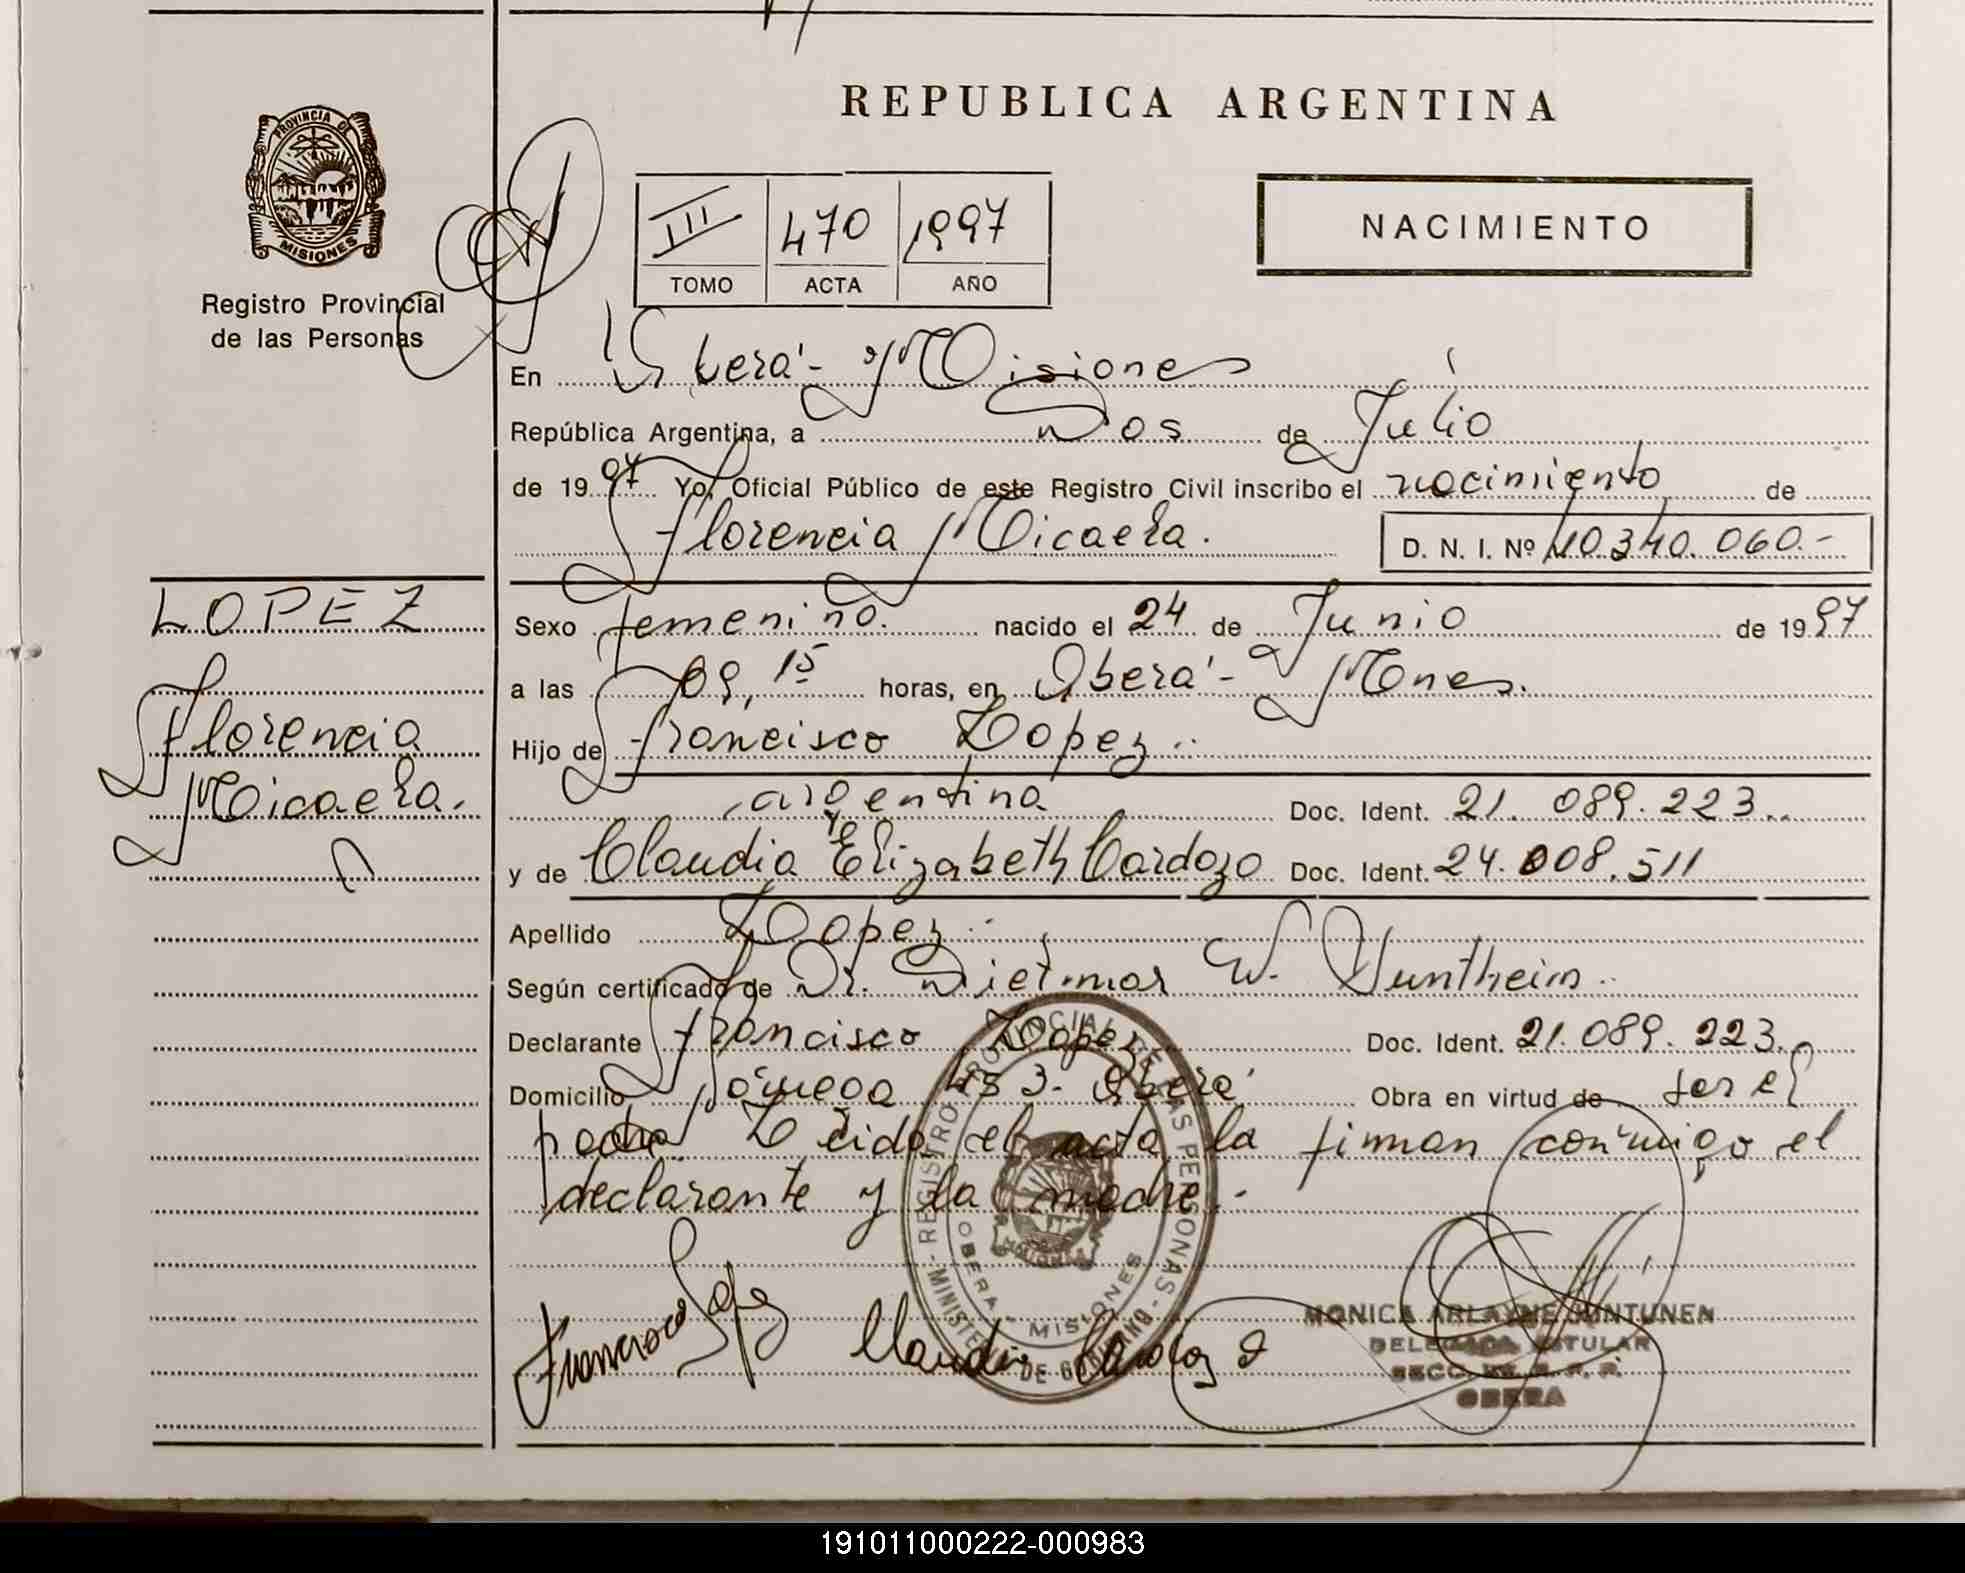 REPUBLICA ARGENTINA
PROVINCIA DE
MISIONES
Registro Provincial
de las Personas
III 470 1997
TOMO ACTA AÑO
NACIMIENTO
En Oberá - Misiones
República Argentina, a Dos de Julio
de 1997 Yo, Oficial Público de este Registro Civil inscribo el nacimiento de
Florencia Micaela. D. N. I. Nº 40.340.060.-
LOPEZ
Florencia
Micaela.
Sexo femenino. nacido el 24 de Junio de 1997
a las 09,15 horas, en Oberá - Mnes.
Hijo de Francisco Lopez.
argentina Doc. Ident. 21.089.223.
y de Claudia Elizabeth Cardozo Doc. Ident. 24.008.511
Apellido Lopez.
Según certificado de Dr. Dietmar W.
Declarante Francisco Lopez. Doc. Ident. 21.089.223.
Domicilio 453 - Oberá Obra en virtud de ser el
padre. Leido el acta la firman conmigo el
declarante y la madre.-
REGISTRO PROVINCIAL DE LAS PERSONAS
MINISTERIO DE GOBIERNO
OBERA - MISIONES
Francisco Lopez
Claudia Cardozo
MONICA ARLAYNE JUNTUNEN
DELEGADA TITULAR
OBERA
191011000222-000983